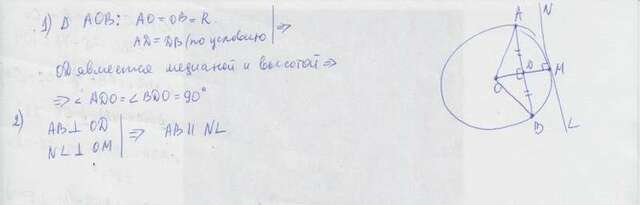 1) Δ AOB: AO = OB = R
AD = DB (по условию) | ⇒
OD является медианой и высотой ⇒
⇒ ∠ADO = ∠BDO = 90°
2) AB ⊥ OD
NL ⊥ OM | ⇒ AB ∥ NL
A
N
D
M
O
B
L